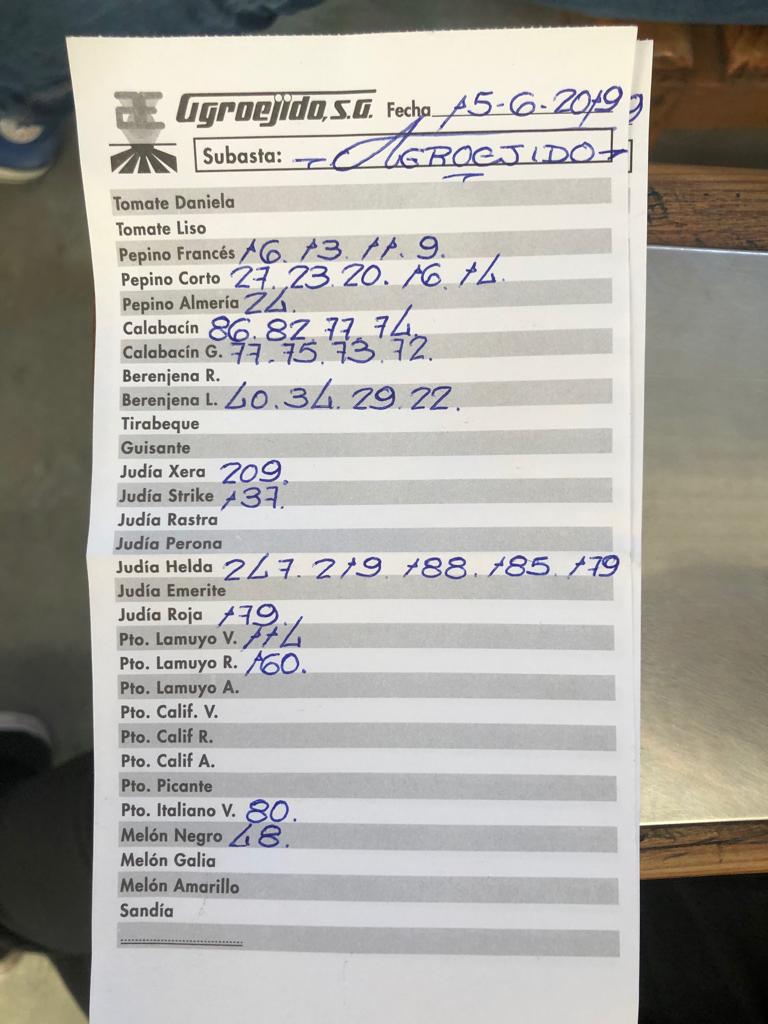 Agroejido, S.A. Fecha 15-6-2019
Subasta: - AGROEJIDO -
Tomate Daniela
Tomate Liso
Pepino Francés 16. 13. 11. 9.
Pepino Corto 27. 23. 20. 16. 14.
Pepino Almería 24.
Calabacín 86. 82. 77. 74.
Calabacín G. 77. 75. 73. 72.
Berenjena R.
Berenjena L. 40. 34. 29. 22.
Tirabeque
Guisante
Judía Xera 209.
Judía Strike 137.
Judía Rastra
Judía Perona
Judía Helda 247. 219. 188. 185. 179
Judía Emerite
Judía Roja 179.
Pto. Lamuyo V. 114
Pto. Lamuyo R. 160.
Pto. Lamuyo A.
Pto. Calif. V.
Pto. Calif R.
Pto. Calif A.
Pto. Picante
Pto. Italiano V. 80.
Melón Negro 48.
Melón Galia
Melón Amarillo
Sandía